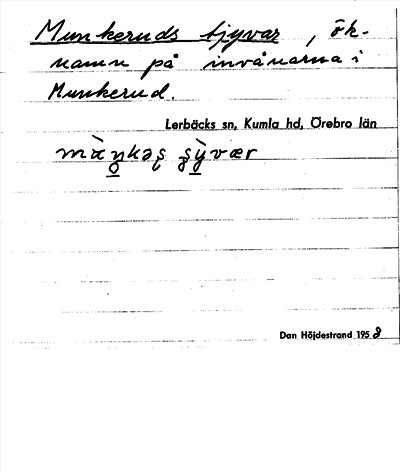 Munkeruds tjyvar, ök-
namn på invånarna i
Munkerud.
Lerbäcks sn, Kumla hd, Örebro län
Dan Höjdestrand 1958